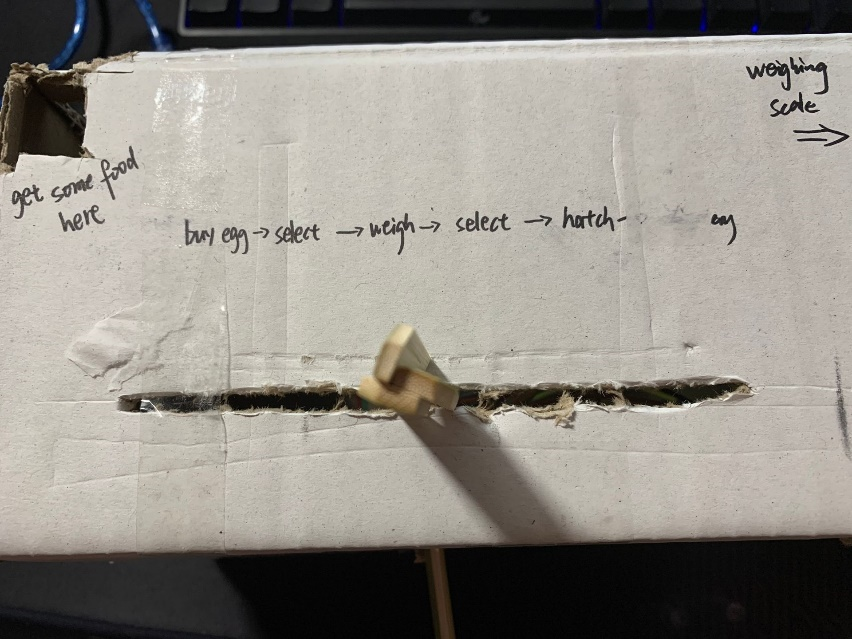 weighing
scale
⇒
get some food
here
buy egg → select → weigh → select → hatch-